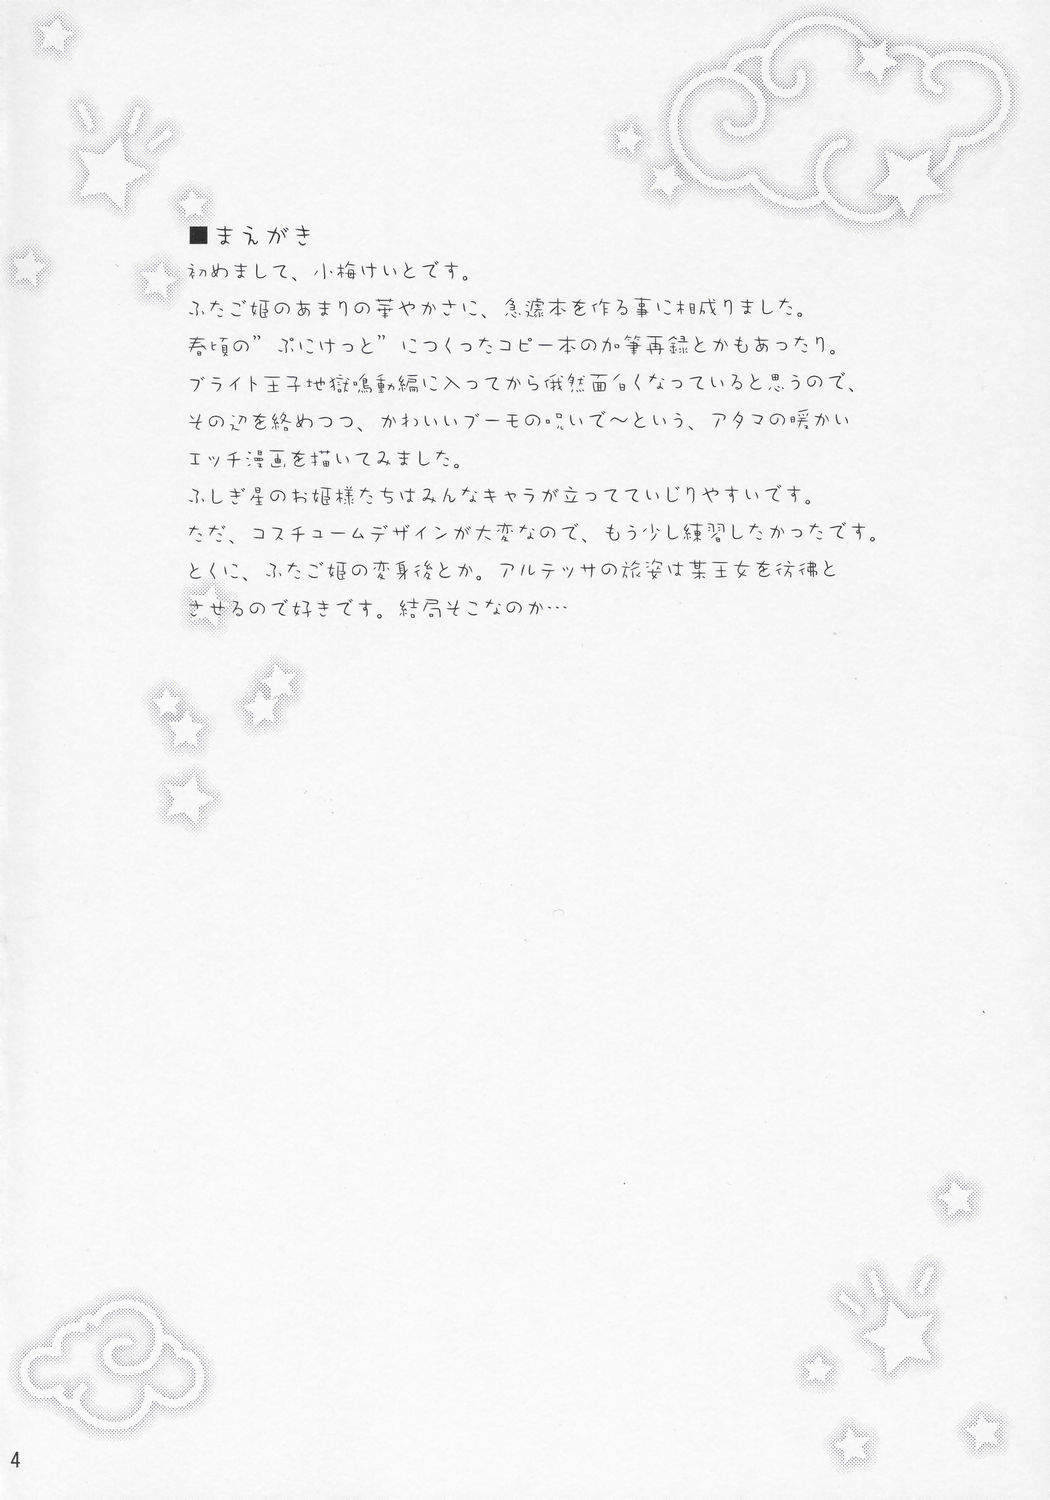 ■まえがき
初めまして、小梅けいとです。
ふたご姫のあまりの華やかさに、急遽本を作る事に相成りました。
春頃の”ぷにけっと”につくったコピー本の加筆再録とかもあったり。
ブライト王子地獄鳴動編に入ってから俄然面白くなっていると思うので、
その辺を絡めつつ、かわいいブーモの呪いで～という、アタマの暖かい
エッチ漫画を描いてみました。
ふしぎ星のお姫様たちはみんなキャラが立ってていじりやすいです。
ただ、コスチュームデザインが大変なので、もう少し練習したかったです。
とくに、ふたご姫の変身後とか。アルテッサの旅姿は某王女を彷彿と
させるので好きです。結局そこなのか…
4